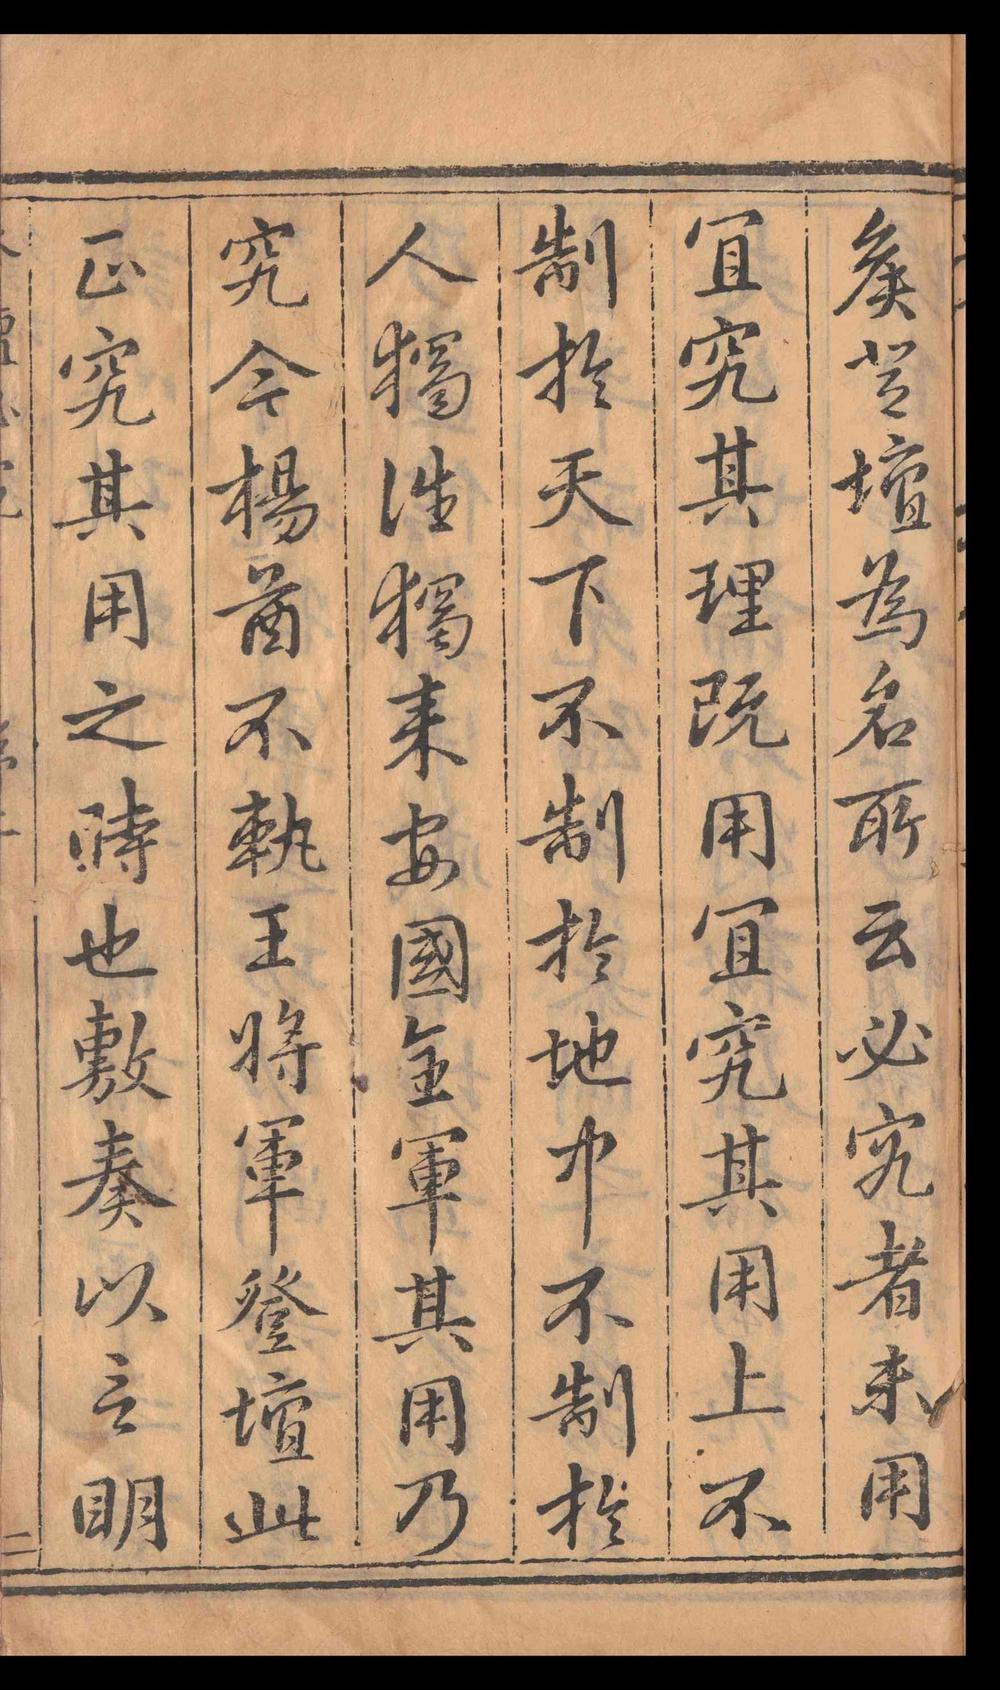 矦登壇為名所云必究者未用
宜究其理既用宜究其用上不
制於天下不制於地中不制於
人獨往獨来安國全軍其用乃
究今楊酋不執王將軍登壇此
正究其用之時也敷奏以言明